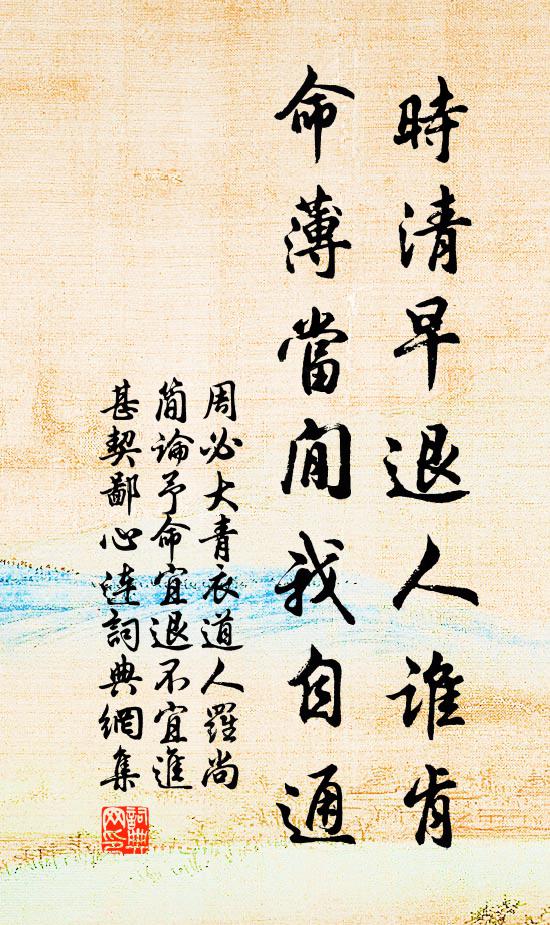 時清早退人誰肯
命薄當閒我自通
周必大青衣道人羅尚
簡論予命宜退不宜進
甚契鄙心連詞典網集
詞典網印